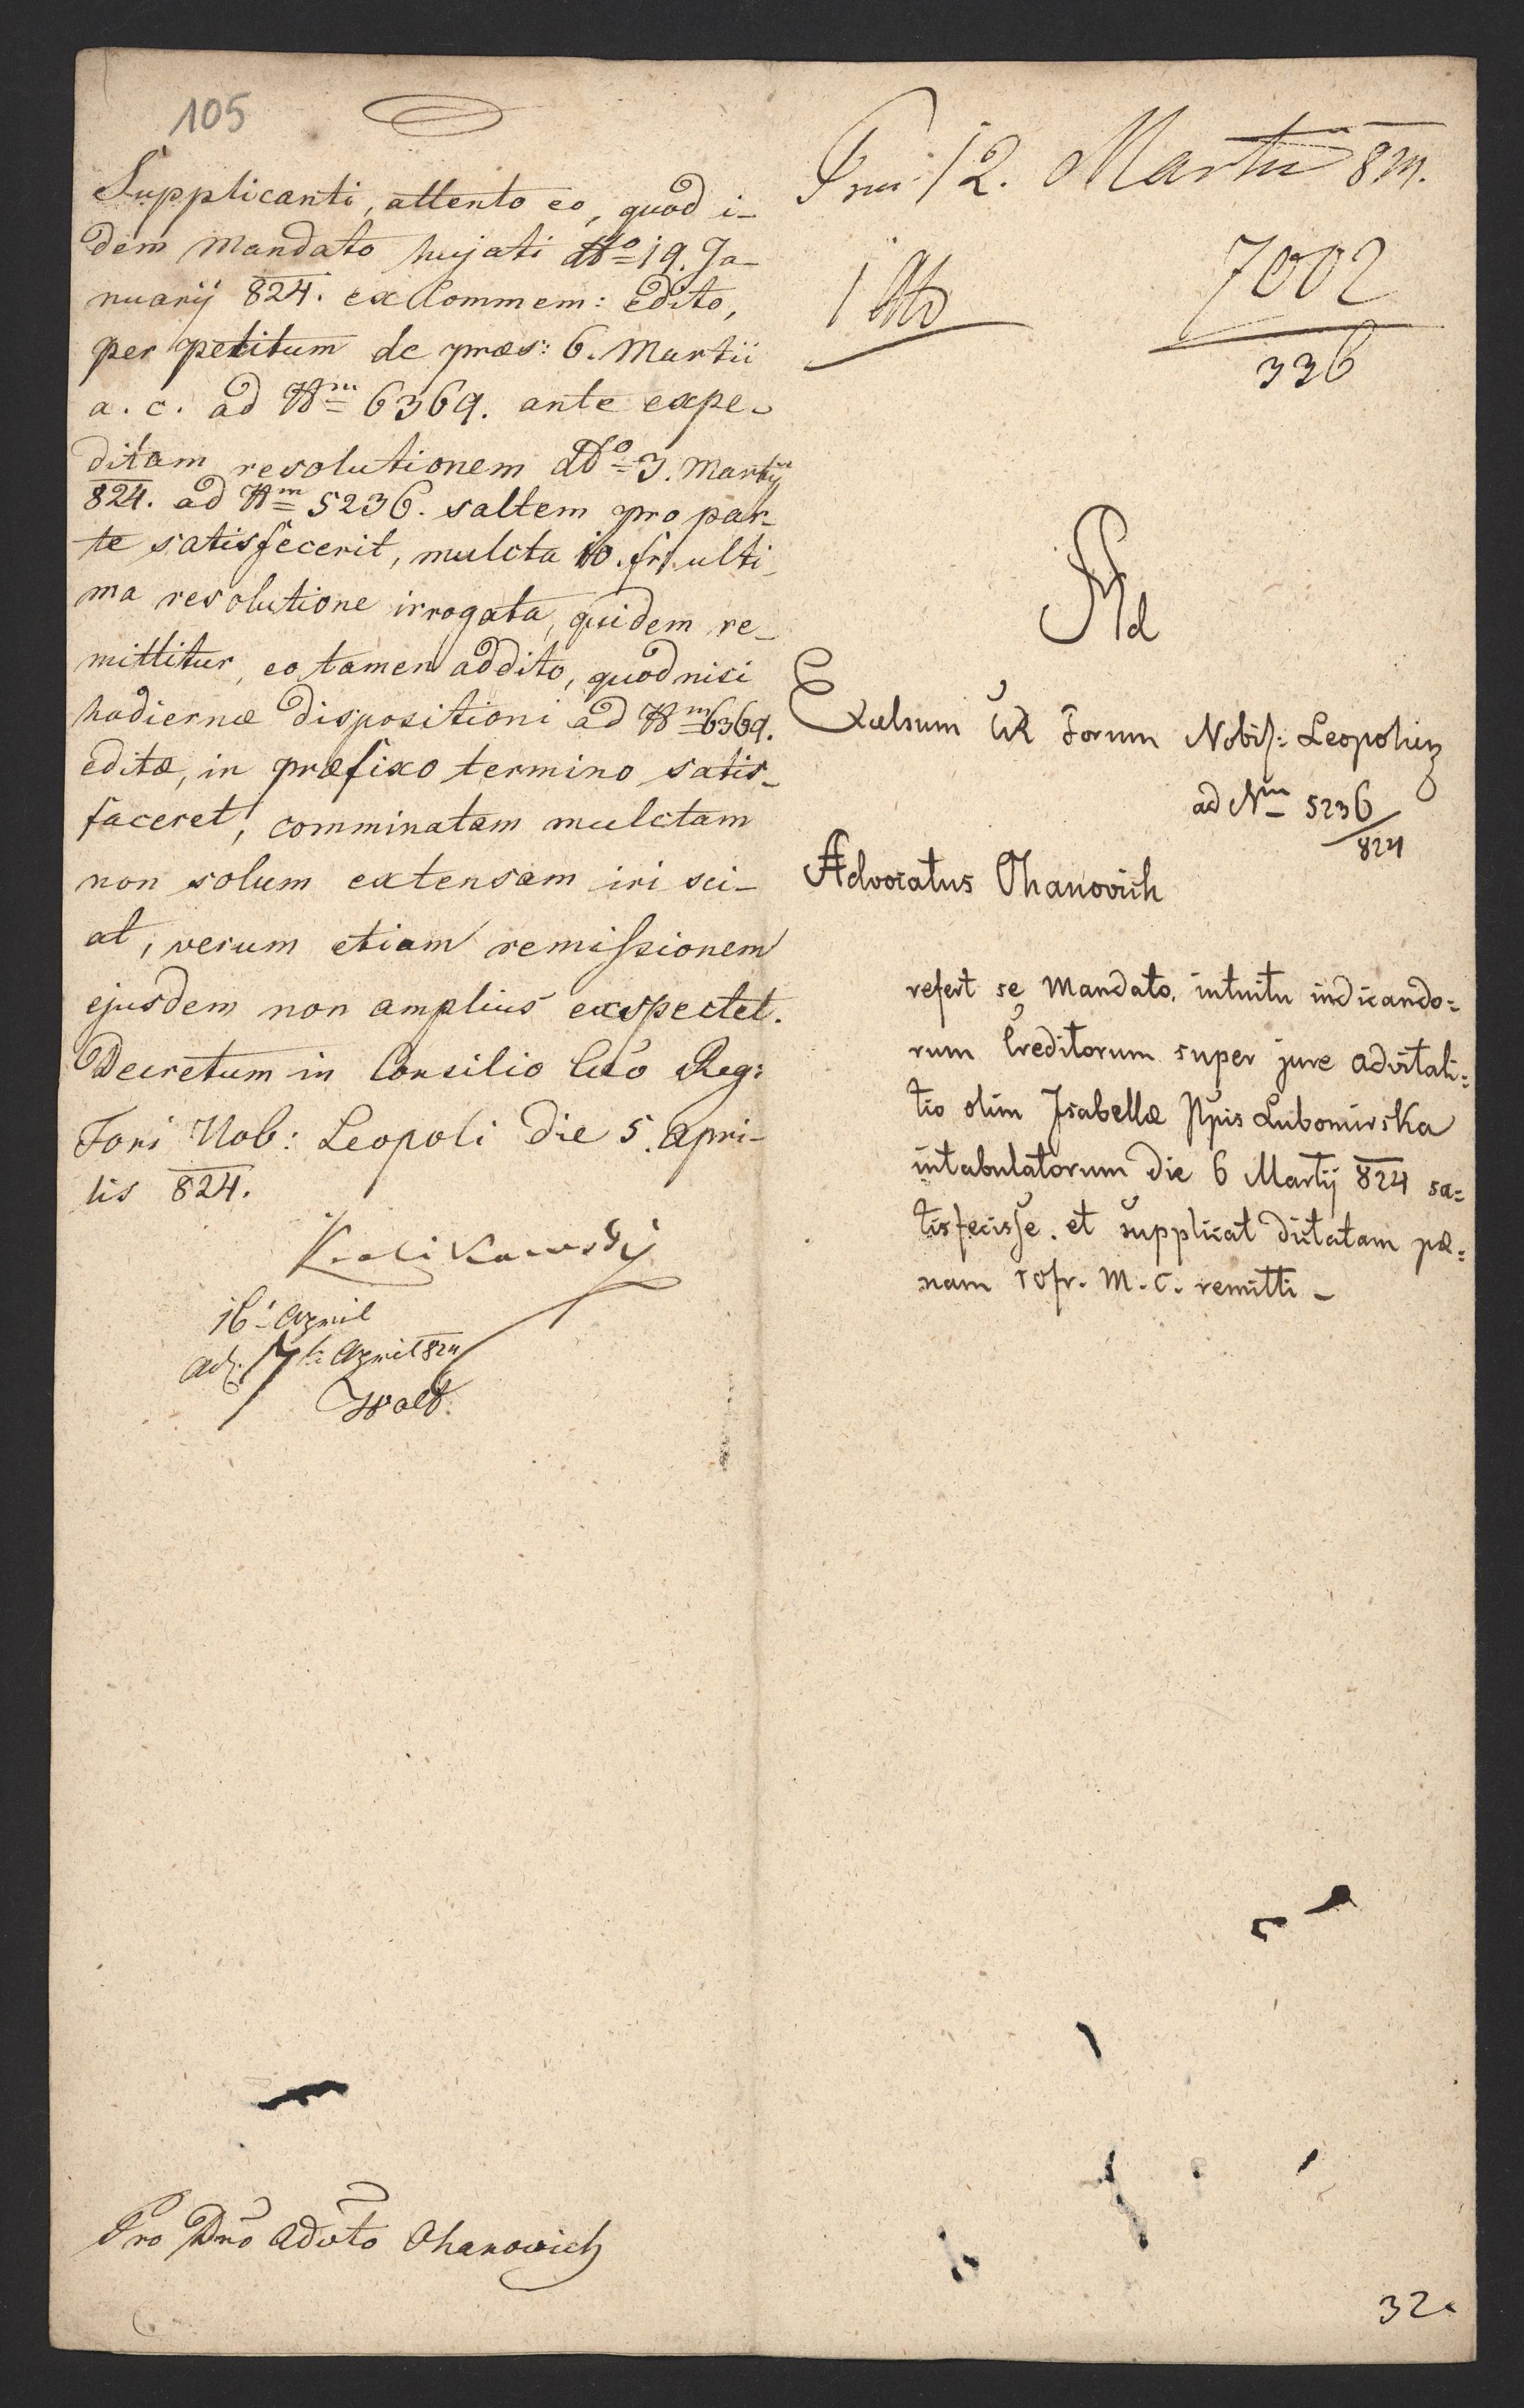 105
Supplicanti, attento eo, quod i-
dem Mandato hujati ddo 19. Ja-
nuarij 824. ex Commem: edito,
per petitum de præs: 6. Martii
a. c. ad Nm 6369. ante expe-
ditam resolutionem ddo 3. Martij
824. ad Nm 5236. saltem pro par-
te satisfecerit, mulcta 10. fr. ulti-
ma resolutione irrogata, quidem re-
mittitur, eo tamen addito, quod nisi
hodiernæ dispositioni ad Nm 6369.
editæ, in præfixo termino satis-
faceret, comminatam mulctam
non solum extensam iri sci-
at, verum etiam remissionem
ejusdem non amplius exspectet.
Decretum in Consilio Cæo Reg:
Fori Nob: Leopoli die 5. Apri-
lis 824.
16 April
17 April 824
Pro Dno Advto Ohanowich
12. Martii
7002
336
Ad
Excelsum CR Forum Nobil: Leopolien
ad Nm 5236
824
Advocatus Ohanovich
refert se Mandato, intuitu indicando=
rum Creditorum super jure advitali=
tio olim Isabellæ Ppis Lubomirska
intabulatorum die 6 Martij 824 sa=
tisfecisse. et supplicat dictatam pæ=
nam 10 fr. M. C. remitti -
32.